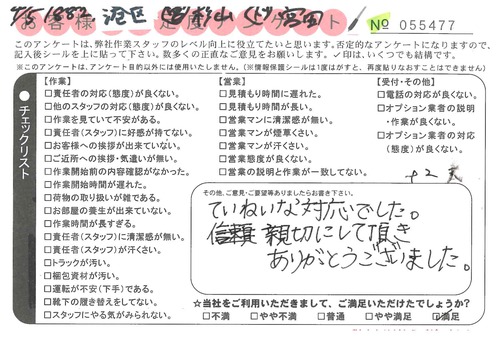 お客様満足度アンケート № 055477
このアンケートは、弊社作業スタッフのレベル向上に役立てたいと思います。否定的なアンケートになりますので、
記入後シールを上に貼って下さい。数多くの正直なご意見をお願いします。✓印は、いくつでも結構です。
※このアンケートは、アンケート目的以外には使用いたしません。(※情報保護シールは1度はがすと、再度貼りなおすことはできません)
チェックリスト
【作業】
□責任者の対応(態度)が良くない。
□他のスタッフの対応(態度)が良くない。
□作業を見ていて不安がある。
□責任者(スタッフ)に好感が持てない。
□お客様への挨拶が出来ていない。
□ご近所への挨拶・気遣いが無い。
□作業開始前の内容確認がなかった。
□作業開始時間が遅れた。
□荷物の取り扱いが雑である。
□お部屋の養生が出来ていない。
□作業時間が長すぎる。
□責任者(スタッフ)に清潔感が無い。
□責任者(スタッフ)が汗くさい。
□トラックが汚い。
□梱包資材が汚い。
□運転が不安(下手)である。
□靴下の履き替えをしてない。
□スタッフにやる気がみられない。
【営業】
□見積もり時間に遅れた。
□見積もり時間が長い。
□営業マンに清潔感が無い。
□営業マンが煙草くさい。
□営業マンが汗くさい。
□営業態度が良くない。
□営業の説明と作業が一致してない。
【受付・その他】
□電話の対応が良くない。
□オプション業者の説明
・作業が良くない。
□オプション業者の対応
(態度)が良くない。
その他、ご意見・ご要望等ありましたらお書き下さい。
ていねいな対応でした。
信頼 親切にして頂き
ありがとうございました。
☆当社をご利用いただきまして、ご満足いただけたでしょうか?
□不満 □やや不満 □普通 □やや満足 ☑満足